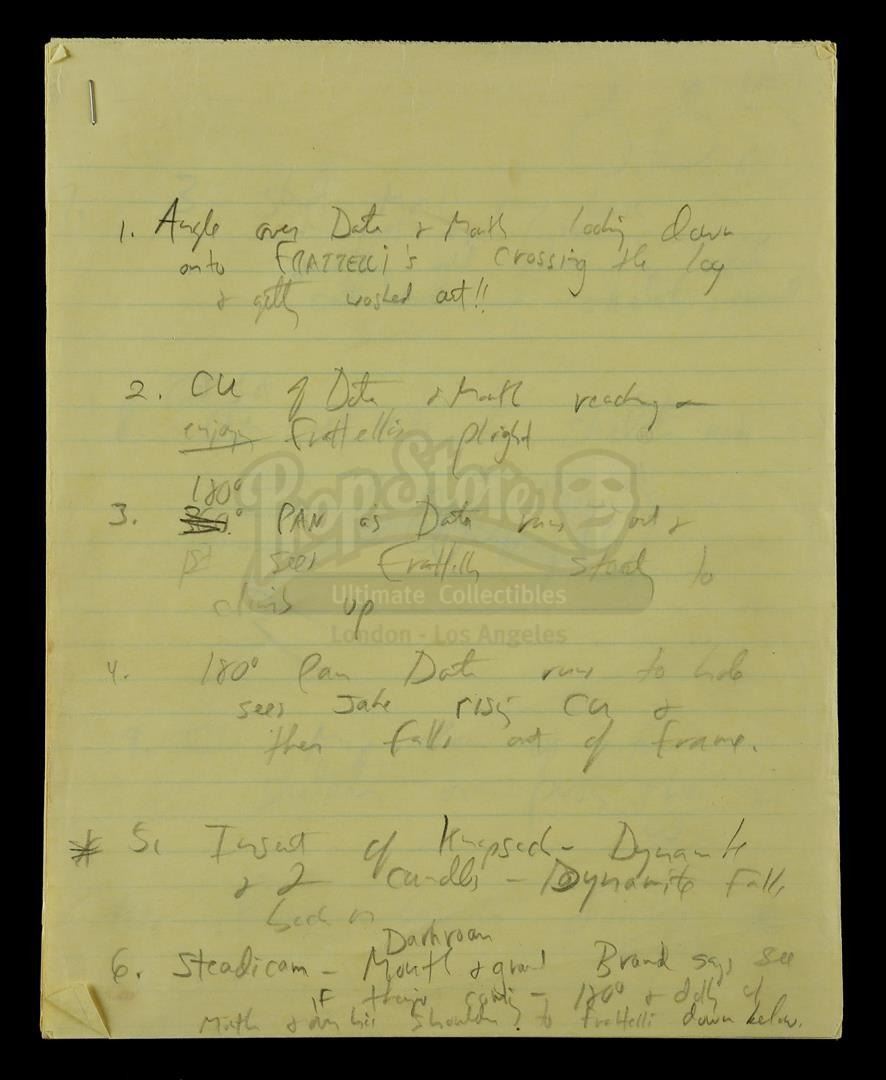 1. Angle over Data & Mouth looking down
onto FRATTELLI'S crossing the log
& getting washed out!!
2. CU of Data & Mouth reacting
enjoy Frattellis plight
180°
3. PAN as Data runs out &
sees Frattellis starting to
climb up
4. 180° Pan Data runs to hole
sees Jake rising CU &
then falls out of frame.
* 5. Insert of Knapsack - Dynamite
& 2 candles - Dynamite falls
back in
Darkroom
6. Steadicam - Mouth & Brand says see
if their coming - 180° & dolly of
Mouth & over his shoulder to Frattelli down below.
PropStore
Ultimate Collectibles
London - Los Angeles